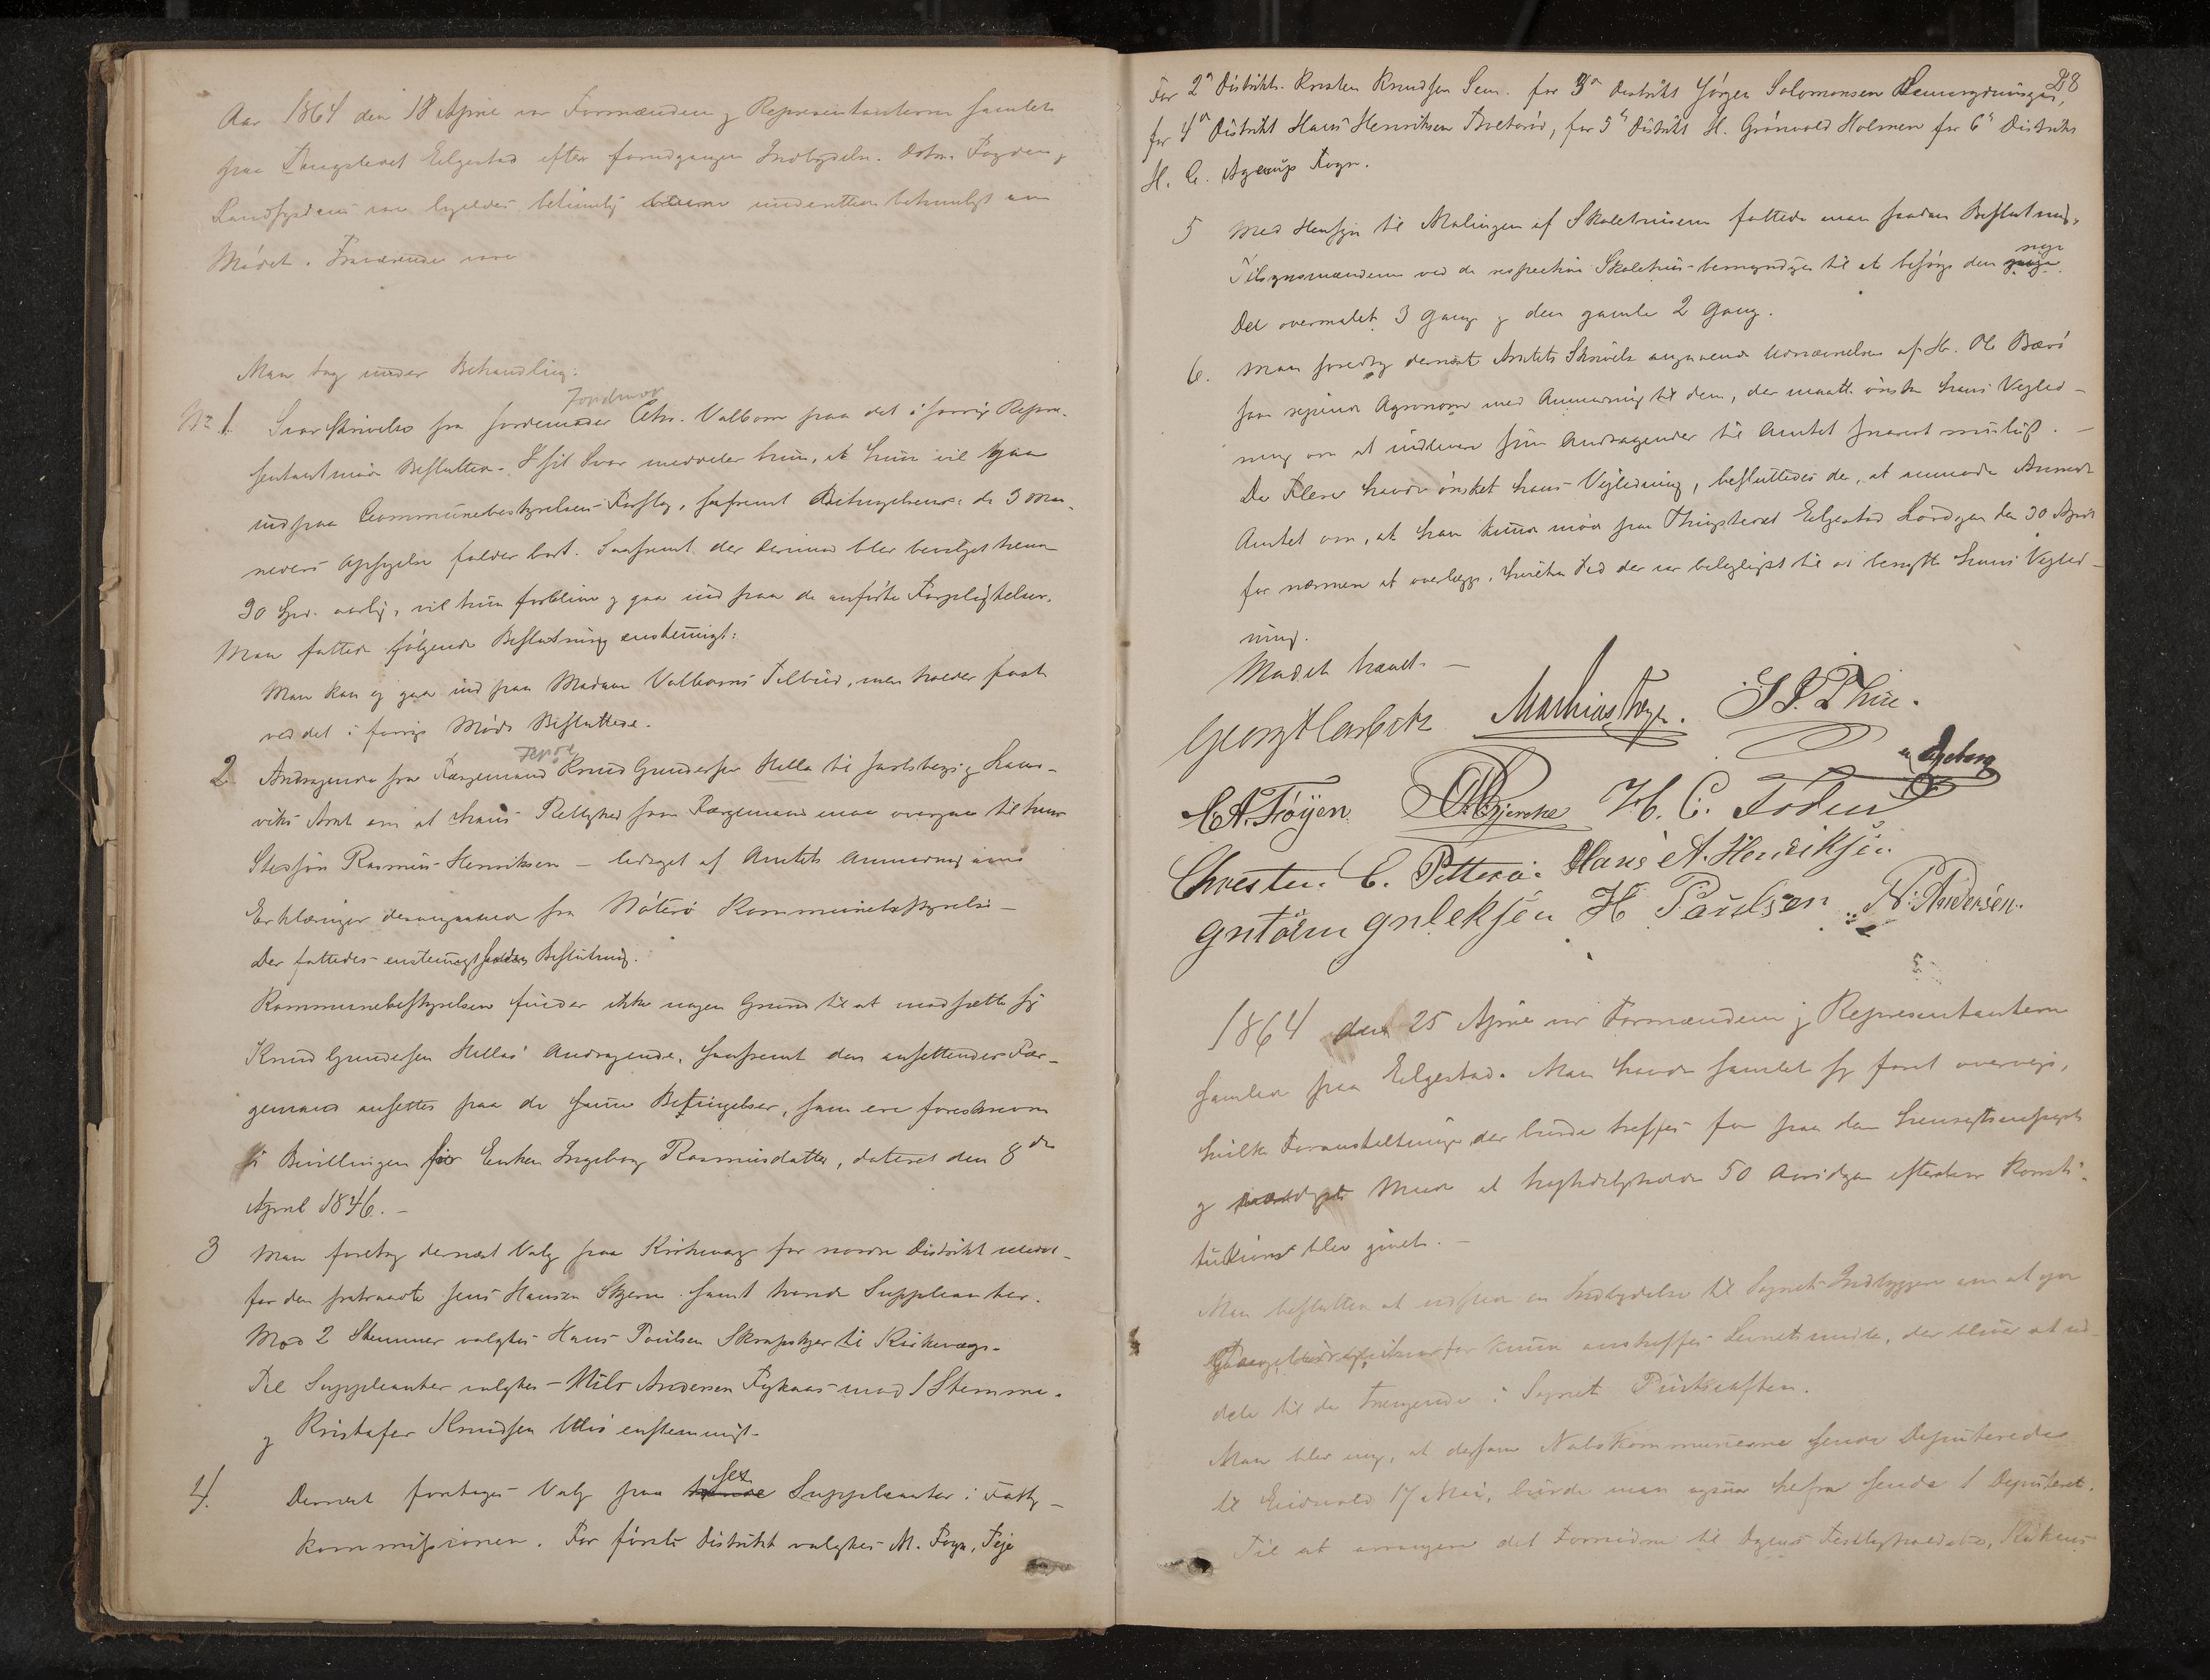 Aar 1864 den 18 April var Formændene og Repræsentanterne samlede
paa Thingstedet Eilgestad efter foredgangen Indbydelse. Fogden og
Landfysikus var ligeledes betimelig underrettede betimeligt om
Mødet. Fraværende vare
Man tog under Behandling:
Jordmor
No 1. Svarskrivelse fra Jordemoder Chr. Valborn paa det i forrige Repræ-
sentantmøde Besluttede. I sit Svar meddeler hun, at hun vil gaa
ind paa Communebestyrelsens Forslag, saafremt Betingelserne de 3 Maa-
neders Opsigelse falder bort. Saafremt der derimod blev bevilget hende
30 Spd. aarlig, vil hun forblive og gaa ind paa de anførte Forpligtelser.
Man fattede følgende Beslutning enstemmigt:
Man kan ej gaa ind paa Madame Valborns Tilbud, men holder fast
ved det i forrige Møde Besluttede.
2. Andragende fra Færgemand Knud Gundersen Hella til Jarlsbergs og Laur-
viks Amt om at hans Rettighed som Færgemand maa overgaa til hans
Stefsøn Rasmus Henriksen – ledsaget af Amtets Anmodning om
Erklæringer desangaaende fra Nøterø Kommunebestyrelse –
Der fattedes enstemmigt saadan Beslutning.
Kommunebestyrelsen finder ikke nogen Grund til at modsætte sig
Knud Gundersen Hellas Andragende, saafremt den ansettendes Fær-
gemand ansettes paa de samme Betingelser, som ere foreskrevne
i Bevillingen for Enken Ingeborg Rasmusdatter, dateret den 8de
April 1846. –
3 Man foretog dernæst Valg paa Kirkeværge for nordre Distrikt istedet-
for den fratraadte Jens Hansen Skjerve samt tvende Suppleanter.
Mod 2 Stemmer valgtes Hans Poulsen Skrapskjer til Kirkeværge.
Til Suppleanter valgtes – Nils Andersen mod 1 Stemme.
og Kristofer Knudsen enstemmigt.
4. Dernest foretoges Valg paa sex Suppleanter i Fattig-
kommissionen. For første Distrikt valgtes M. Foyn, Teje
28
For 2n Distrikt. Kristen Knudsen Sem. for 3n Distrikt Jørgen Salomonsen
for 4n Distrikt Hans Henriksen, for 5n Distrikt H. Grønvold Holmen for 6n Distrikt
H. C. Agerup Foyn.
5 Med Hensyn til Malingen af Skolehusene fattede man saadan Beslutning,
Tilsynsmændene ved de respektive Skolehus bemyndiges til at besørge den nye
Del overmalet 3 Gange og den gamle 2 Gang.
6. Man foretog dernæst Amtets Skrivelse angaaende Udnævnelsen af Hr. Ole Bærø
som reisende Agronom med Anmodning til dem, der maatte ønske hans Vejled-
ning om at indlevere sine Andragender til Amtet snarest muligt. –
Da Flere havde ønsket hans Vejledning, besluttedes der, at anmode
Amtet om, at han kunde møde paa Thingstedet Eilgestad Lørdagen den 30 April
for nærmere at overlægge, hvilken Tid der var belejligst til at benytte hans Vejled-
ning.
Mødet hævet. –
Mathias Foyn.
C. A. Føyen H. C.
Christen C. Hans A. Henriksen
Guttorm H Paulsen N. Andersen.
1864 den 25 April var Formændene og Repræsentanterne
samlede paa Eilgestad. Man havde samlet sig for at overveje,
hvilke Foranstaltninger der burde treffes for paa den hensigtsmæssigste
og Maade at høytideligholde 50 Aarsdagen efterat Konsti-
tutionen blev givet. –
Man besluttede at udstede en Indbydelse til Sognets Indbyggere om at gjøre
for kunne anskaffes Levnetsmidler, der bliver at ud-
dele til de Trengende i Sognet Pintseaften.
Man blev enig, at dersom Nabokommunerne sende Deputerede
til Eidsvold 17 Mai, burde man ogsaa herfra sende 1 Deputeret.
Til at arrangere det Fornødne til Dagens Festligholdelse,